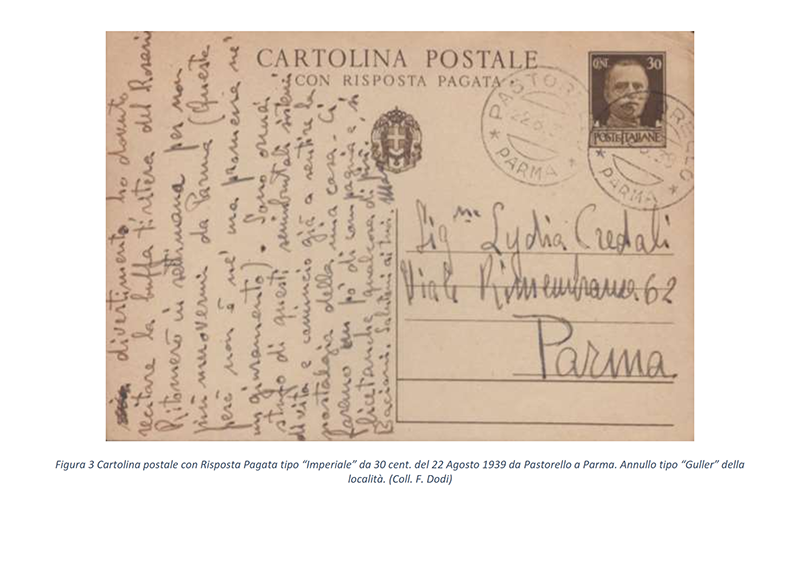 CARTOLINA POSTALE
CON RISPOSTA PAGATA
CENT. 30
POSTE ITALIANE
PASTORELLO
22.8.39
* PARMA *
PASTORELLO
* PARMA *
Sig.na Lydia Credali
Viale Rimembranze 62
Parma
divertimento ho dovuto
recitare la buffa tiritera del Rosari
Ritornerò in settimana per non
più muovermi da Parma (questa
però non è nè una promessa nè
un giuramento). Sono ormai
stufo di questi semibrutali sistemi
di vita e comincio già a sentire la
nostalgia della mia casa. Ci
faremo un po' di compagnia e, si
licet anche qualcosa di più.
Bacioni. Saluteni ai tuoi.
Figura 3 Cartolina postale con Risposta Pagata tipo “Imperiale” da 30 cent. del 22 Agosto 1939 da Pastorello a Parma. Annullo tipo “Guller” della
località. (Coll. F. Dodi)